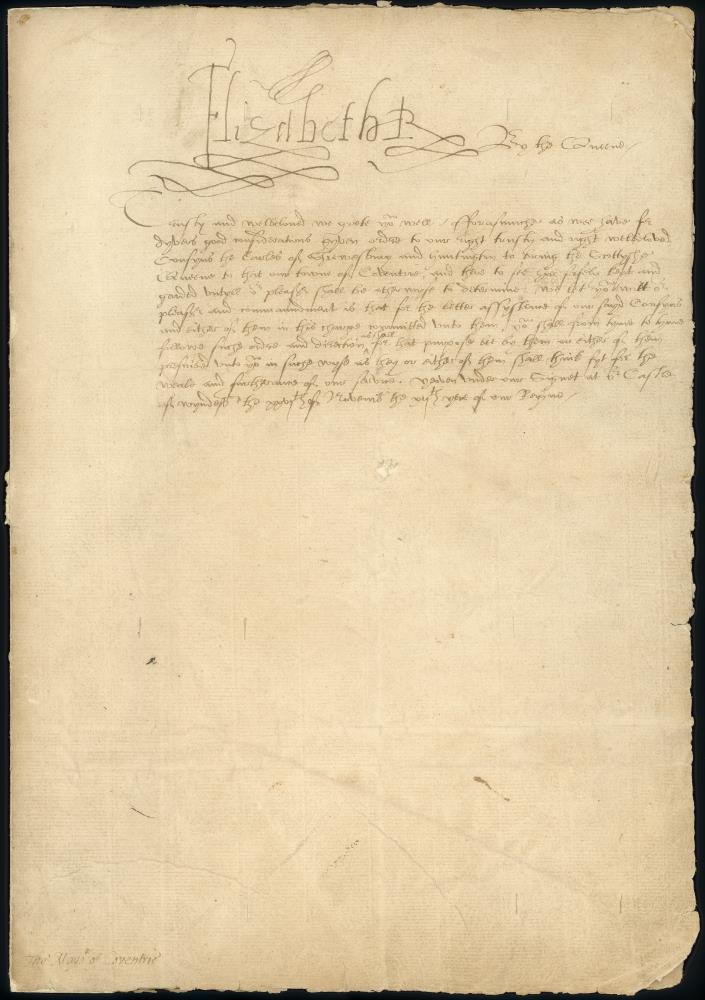 Elizabeth R
By the Queene
Trusty and welbeloved we grete yow well / fforasmuche as wee have for
dyvers good considerations gyven order to our right trusty and right welbeloved
Cousyns the Earles of Shrewsbury and Huntington to bring the Scottyshe
Queene to that our towne of Coventrie, and there to see her safely kept and
garded untyll or pleasr shall be otherwyse to determine, We let yow witt or
pleasr and commaundement is that for the better assystence of our sayd Cousyns
and either of them in this charge committed unto them, yow shall from tyme to tyme
followe suche order and direction as shall for that purpose be by them or either of them
prescribed unto yow in suche wyse as they or either of them shall think fyt for the
weale and furtherance of our service. Yeven under our Signet at or Castle
of Wyndesor the xxvith of Novembr the xijth yere of our Reigne /
The Mayor of Coventrie